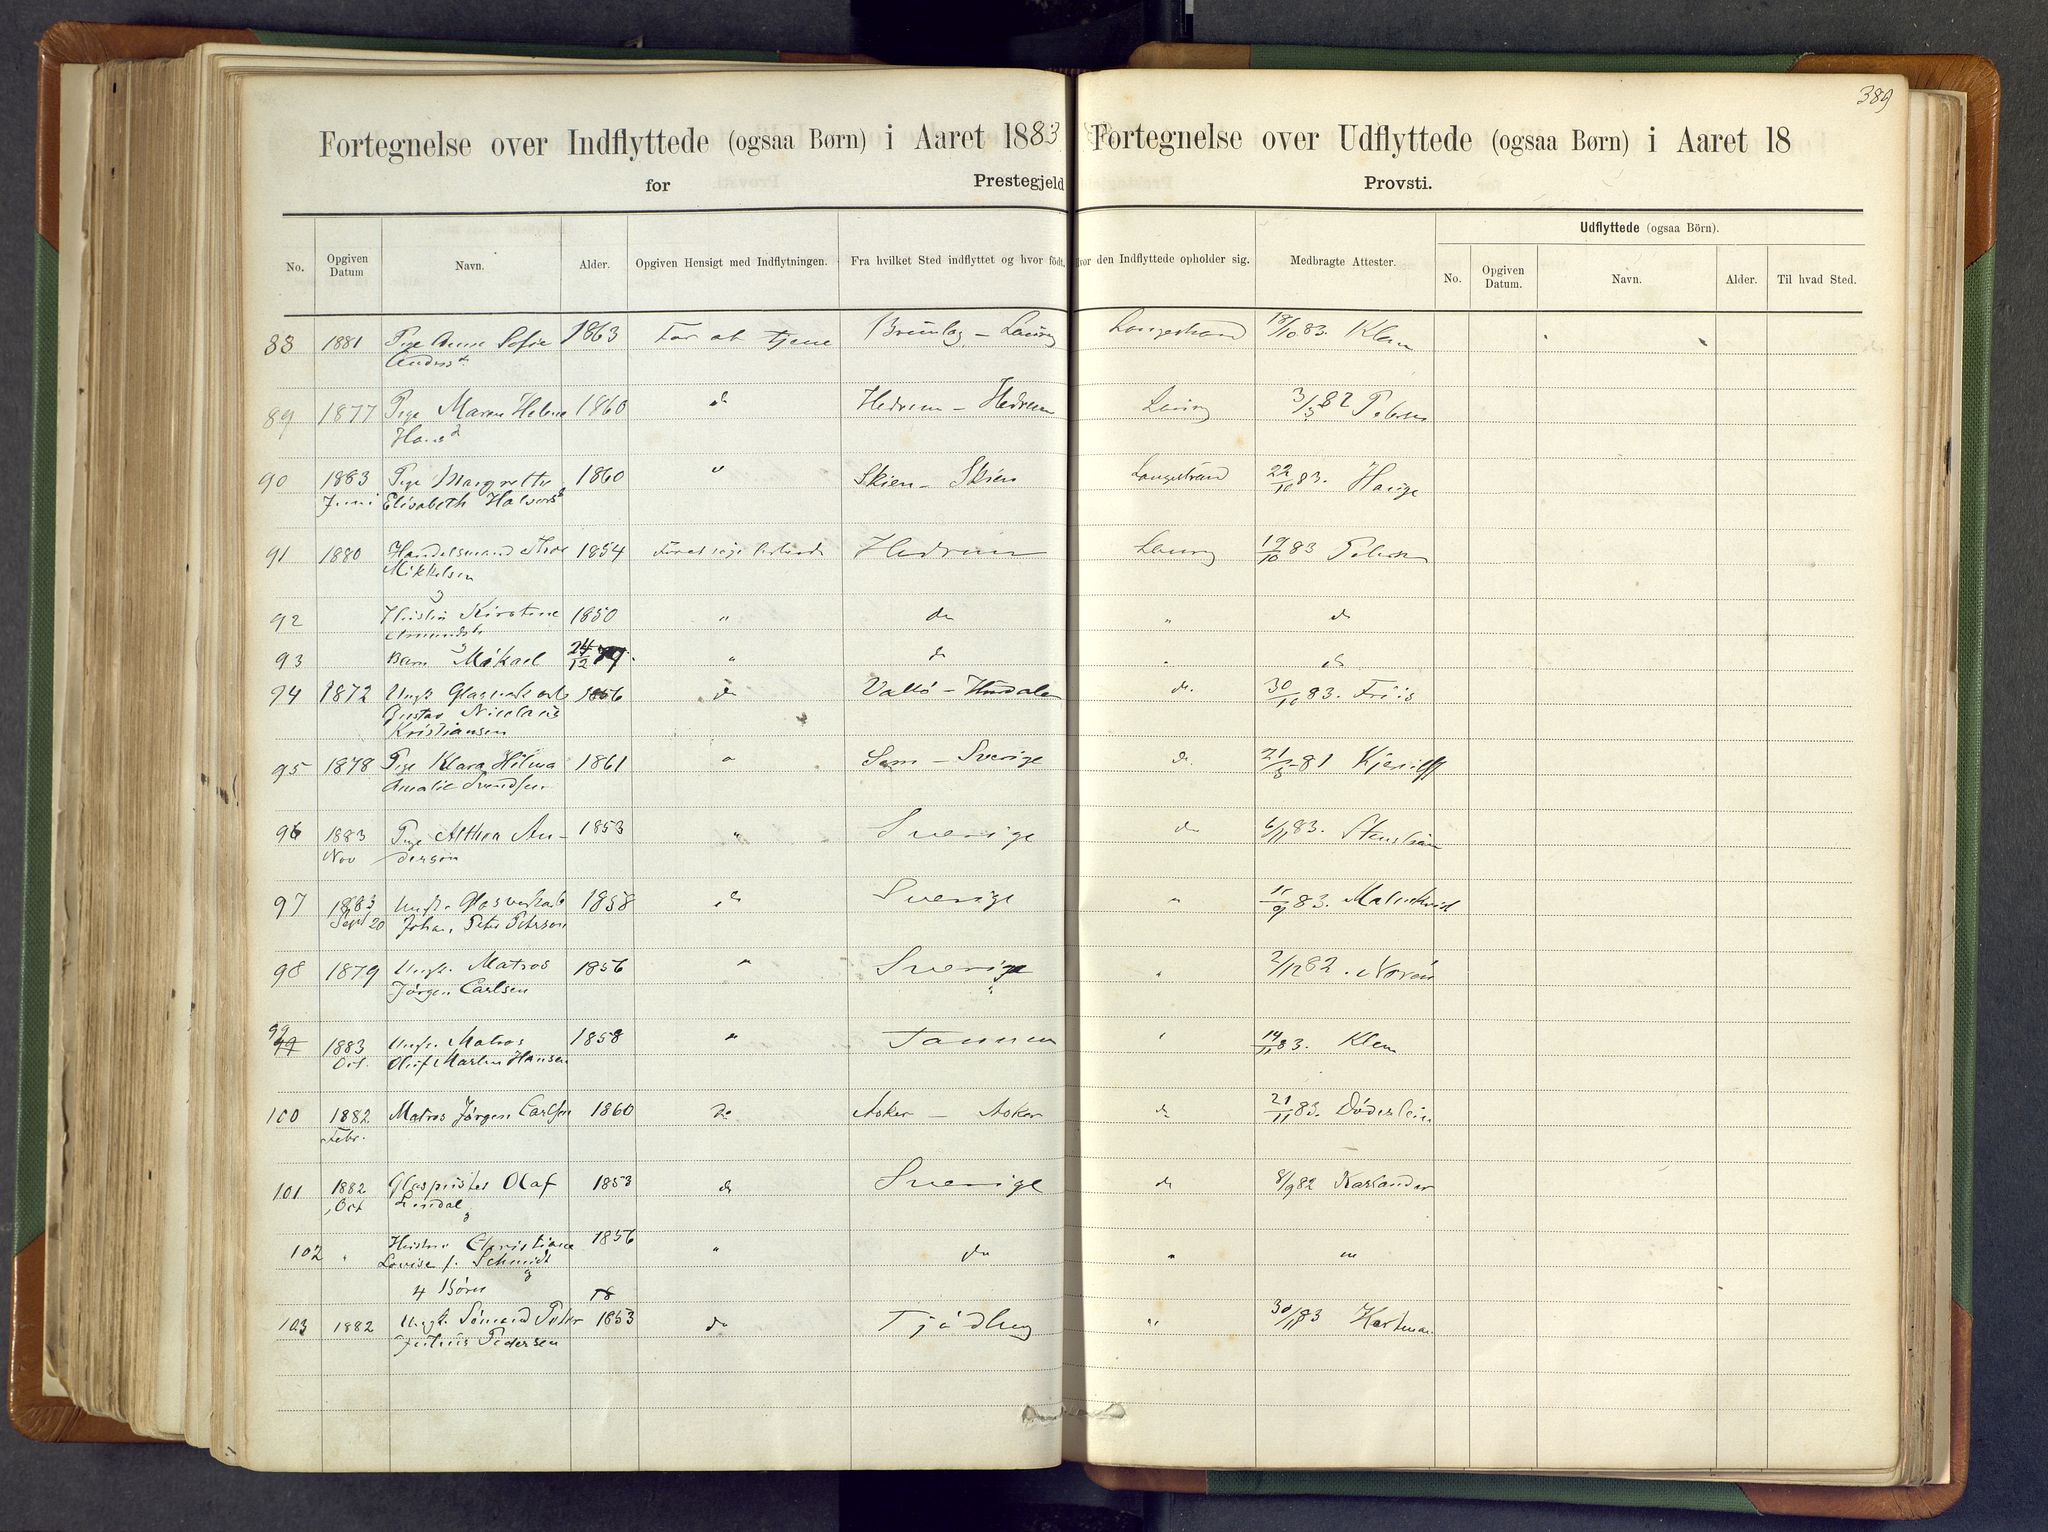 389
Fortegnelse over Indflyttede (ogsaa Børn) i Aaret 1883
Fortegnelse over Udflyttede (ogsaa Børn) i Aaret 18
for Prestegjeld Provsti.
Udflyttede (ogsaa Börn).
No. Opgiven Datum Navn. Alder. Opgiven Hensigt med Indflytningen. Fra hvilket Sted indflyttet og hvor födt. Hvor den Indflyttede opholder sig. Medbragte Attester. No. Opgiven Datum. Navn. Alder. Til hvad Sted.
88 1881 Pige Anne Sofie 1863 For at tjene Brunlag - Laurv Langestrand 18/10 83. Klem
Andersd.
89 1877 Pige Maren Helene 1860 do Hedrum - Hedrum Laurv 3/3 82 Petersen
Hansd
90 1883 Pige Margrethe 1860 " Skien - Skien Langestrand 22/10 83. Hauge
Juni Elisabeth Halvorsd
91 1880 Handelsmand 1854 Hedrum Laurv 19/10 83 Petersen
Mikkelsen
92 Hustru Kirstine 1850 " do " do
Amundsd.
93 Barn Mikael 24/12 79. " do " do
94 1872 Ungk. Glasverksarb 1856 do Vallö - Hurdalen do. 30/10 83. Friis
Gustav Nicolaus
Kristiansen
95 1878 Pige Klara Hilma 1861 " Sem - Sverige do. 21/3 81 Kjerulff
Amalie
96 1883 Pige Althea An- 1853 " Sverige do 6/11 83.
Nov derson
97 1883 Ungk. Glasverksarb 1858 do Sverige " 11/9 83.
Sept 20 Johan Peter Peterson
98 1879 Ungk. Matros 1856 " Sverige " 2/12 82. Norén
Jørgen Carlsen "
99 1883 Ungk. Matros 1858 " Tanum " 14/11 83. Klem
Oct. Oluf Martin Hansen
100 1882 Matros Jørgen Carlsen 1860 do Asker - Asker do 21/11 83. Döderlein
Febr.
101 1882 Glaspuster Olaf 1853 do Sverige do 8/9 82 Karlander
Oct Lindal
102 " Hustru Christiane 1856 " do " "
Lovise f. Schmidt
4 Børn 18
103 1882 Ungk. Sömand Peter 1853 do Tjödling " 30/11 83 Hartman
Julius Pedersen